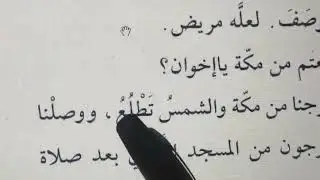 وَصَفَ. لعلَّه مريض.
من مكّة ياإخوان؟
من مكّة والشمسُ تَطْلُعُ، ووصلْنا
من المسجد بعد صلاة